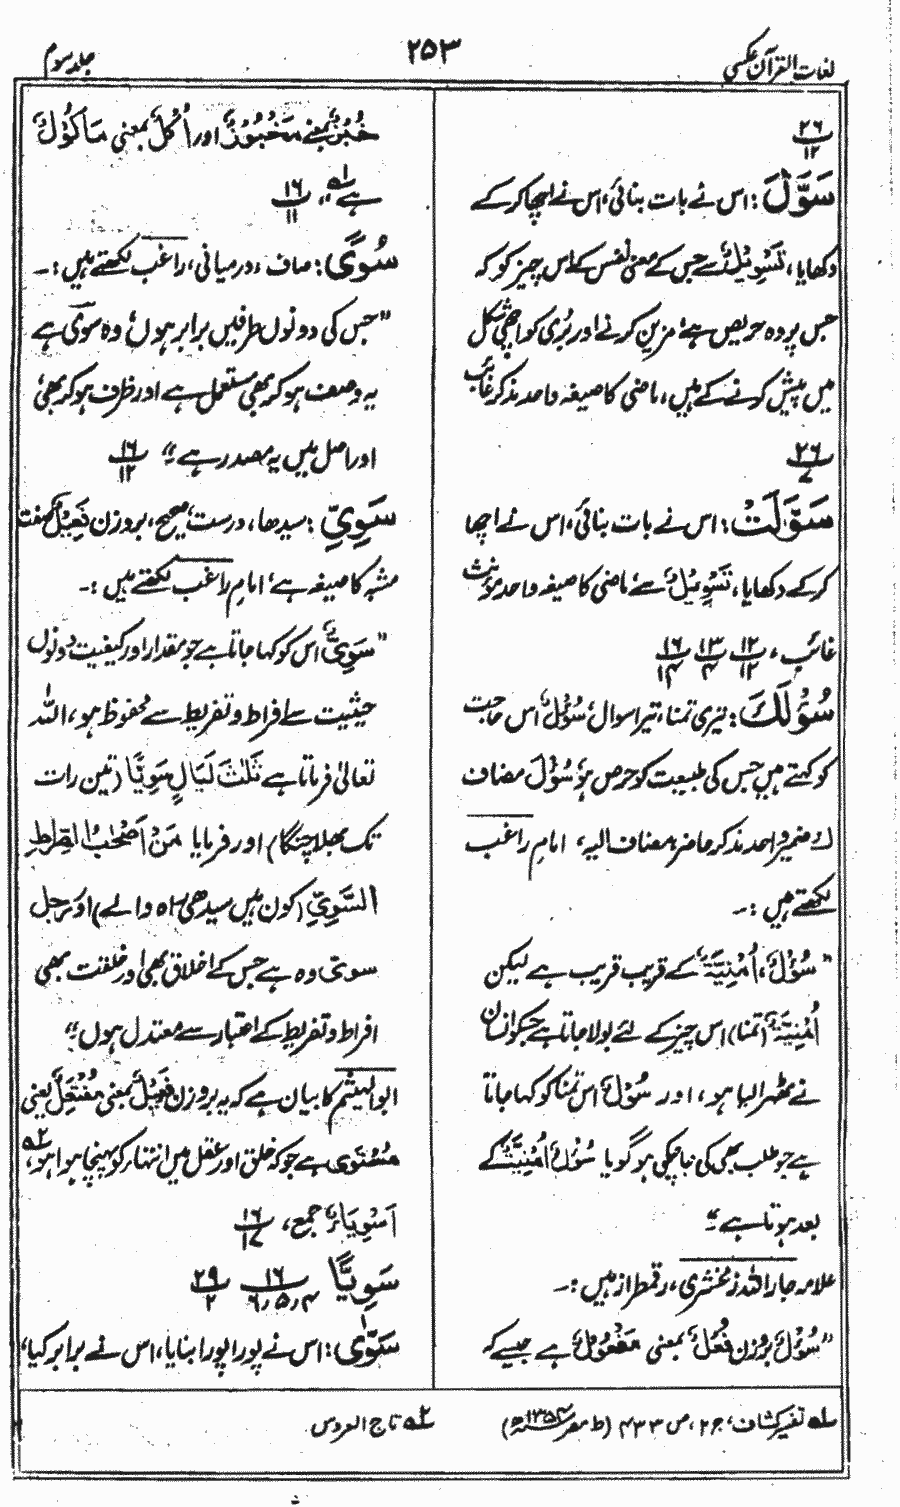 لغات القرآن عکسی
۲۵۳
جلد سوم
۲۶
۱۲
سَوَّلَ: اس نے بات بنائی، اس نے اچھا کر کے
دکھایا، تَسْوِیْلٌ سے جس کے معنی نفس کے اس چیز کو کہ
جس پر وہ حریص ہے، مزین کرنے اور بُری کو اچھی شکل
میں پیش کرنے کے ہیں، ماضی کا صیغہ واحد مذکر غائب
۲۶
۷
سَوَّلَتْ: اس نے بات بنائی، اس نے اچھا
کر کے دکھایا، تَسْوِیْلٌ سے، ماضی کا صیغہ واحد مؤنث
غائب، ۱۲ ۱۳ ۱۶
۱۲ ۴ ۱۴
سُؤْلَكَ: تیری تمنا، تیرا سوال، سُؤْلٌ اس حاجت
کو کہتے ہیں جس کی طبیعت کو حرص ہو، سُؤْلَ مضاف
كَ ضمیر واحد مذکر حاضر مضاف الیہ، امام راغب
لکھتے ہیں :۔
"سُؤْلٌ، اُمْنِیَّةٌ کے قریب قریب ہے لیکن
اُمْنِیَّةٌ (تمنا) اس چیز کے لئے بولا جاتا ہے جس کو انسان
نے ٹھہرا لیا ہو، اور سُؤْلٌ اس تمنا کو کہا جاتا
ہے جو طلب بھی کی جا چکی ہو گویا سُؤْلٌ اُمْنِیَّةٌ کے
بعد ہوتا ہے"
علامہ جار اللہ زمخشری، رقمطراز ہیں :۔
"سُؤْلٌ بروزن فُعْلٌ بمعنی مَفْعُوْلٌ ہے جیسے کہ
خُبْزٌ بمعنی مَخْبُوْزٌ اور اُكُلٌ بمعنی مَاْكُوْلٌ
ہے" ۱ ۱۶
۱۱
سُوًى: صاف، درمیانی، راغب لکھتے ہیں :۔
"جس کی دونوں طرفیں برابر ہوں، وہ سوی ہے
یہ وصف ہو کر بھی مستعمل ہے اور ظرف ہو کر بھی،
اور اصل میں یہ مصدر ہے" ۱۶
۱۲
سَوِيّ: سیدھا، درست، صحیح، بروزن فَعِیْلٌ صفت
مشبہ کا صیغہ ہے، امام راغب لکھتے ہیں :۔
"سَوِيٌّ اس کو کہا جاتا ہے جو مقدار اور کیفیت دونوں
حیثیت سے افراط و تفریط سے محفوظ ہو، اللہ
تعالیٰ فرماتا ہے ثَلٰثَ لَیَالٍ سَوِیًّا (تین رات
تک بھلا چنگا) اور فرمایا مَنْ اَصْحٰبُ الصِّرَاطِ
السَّوِیِّ (کون ہیں سیدھی راہ والے) اور رجل
سوی وہ ہے جس کے اخلاق بھی اور خلقت بھی
افراط و تفریط کے اعتبار سے معتدل ہوں"
ابو الہیثم کا بیان ہے کہ یہ بروزن فَعِیْلٌ بمعنی مُفْتَعِلٌ یعنی
مُسْتَوِی ہے جو کہ خلق اور عقل میں انتہا کو پہنچا ہوا ہو، ۲
اَسْوِیَاءُ جمع، ۱۶
۱۷
سَوِیًّا ۱۶ ۲۹
۴، ۵، ۶ ۲
سَوّٰی: اس نے پورا پورا بنایا، اس نے برابر کیا،
۱ تفسیر کشاف، ج ۲، ص ۴۳۳ (ط مصر ۱۳۵۴ھ)
۲ تاج العروس